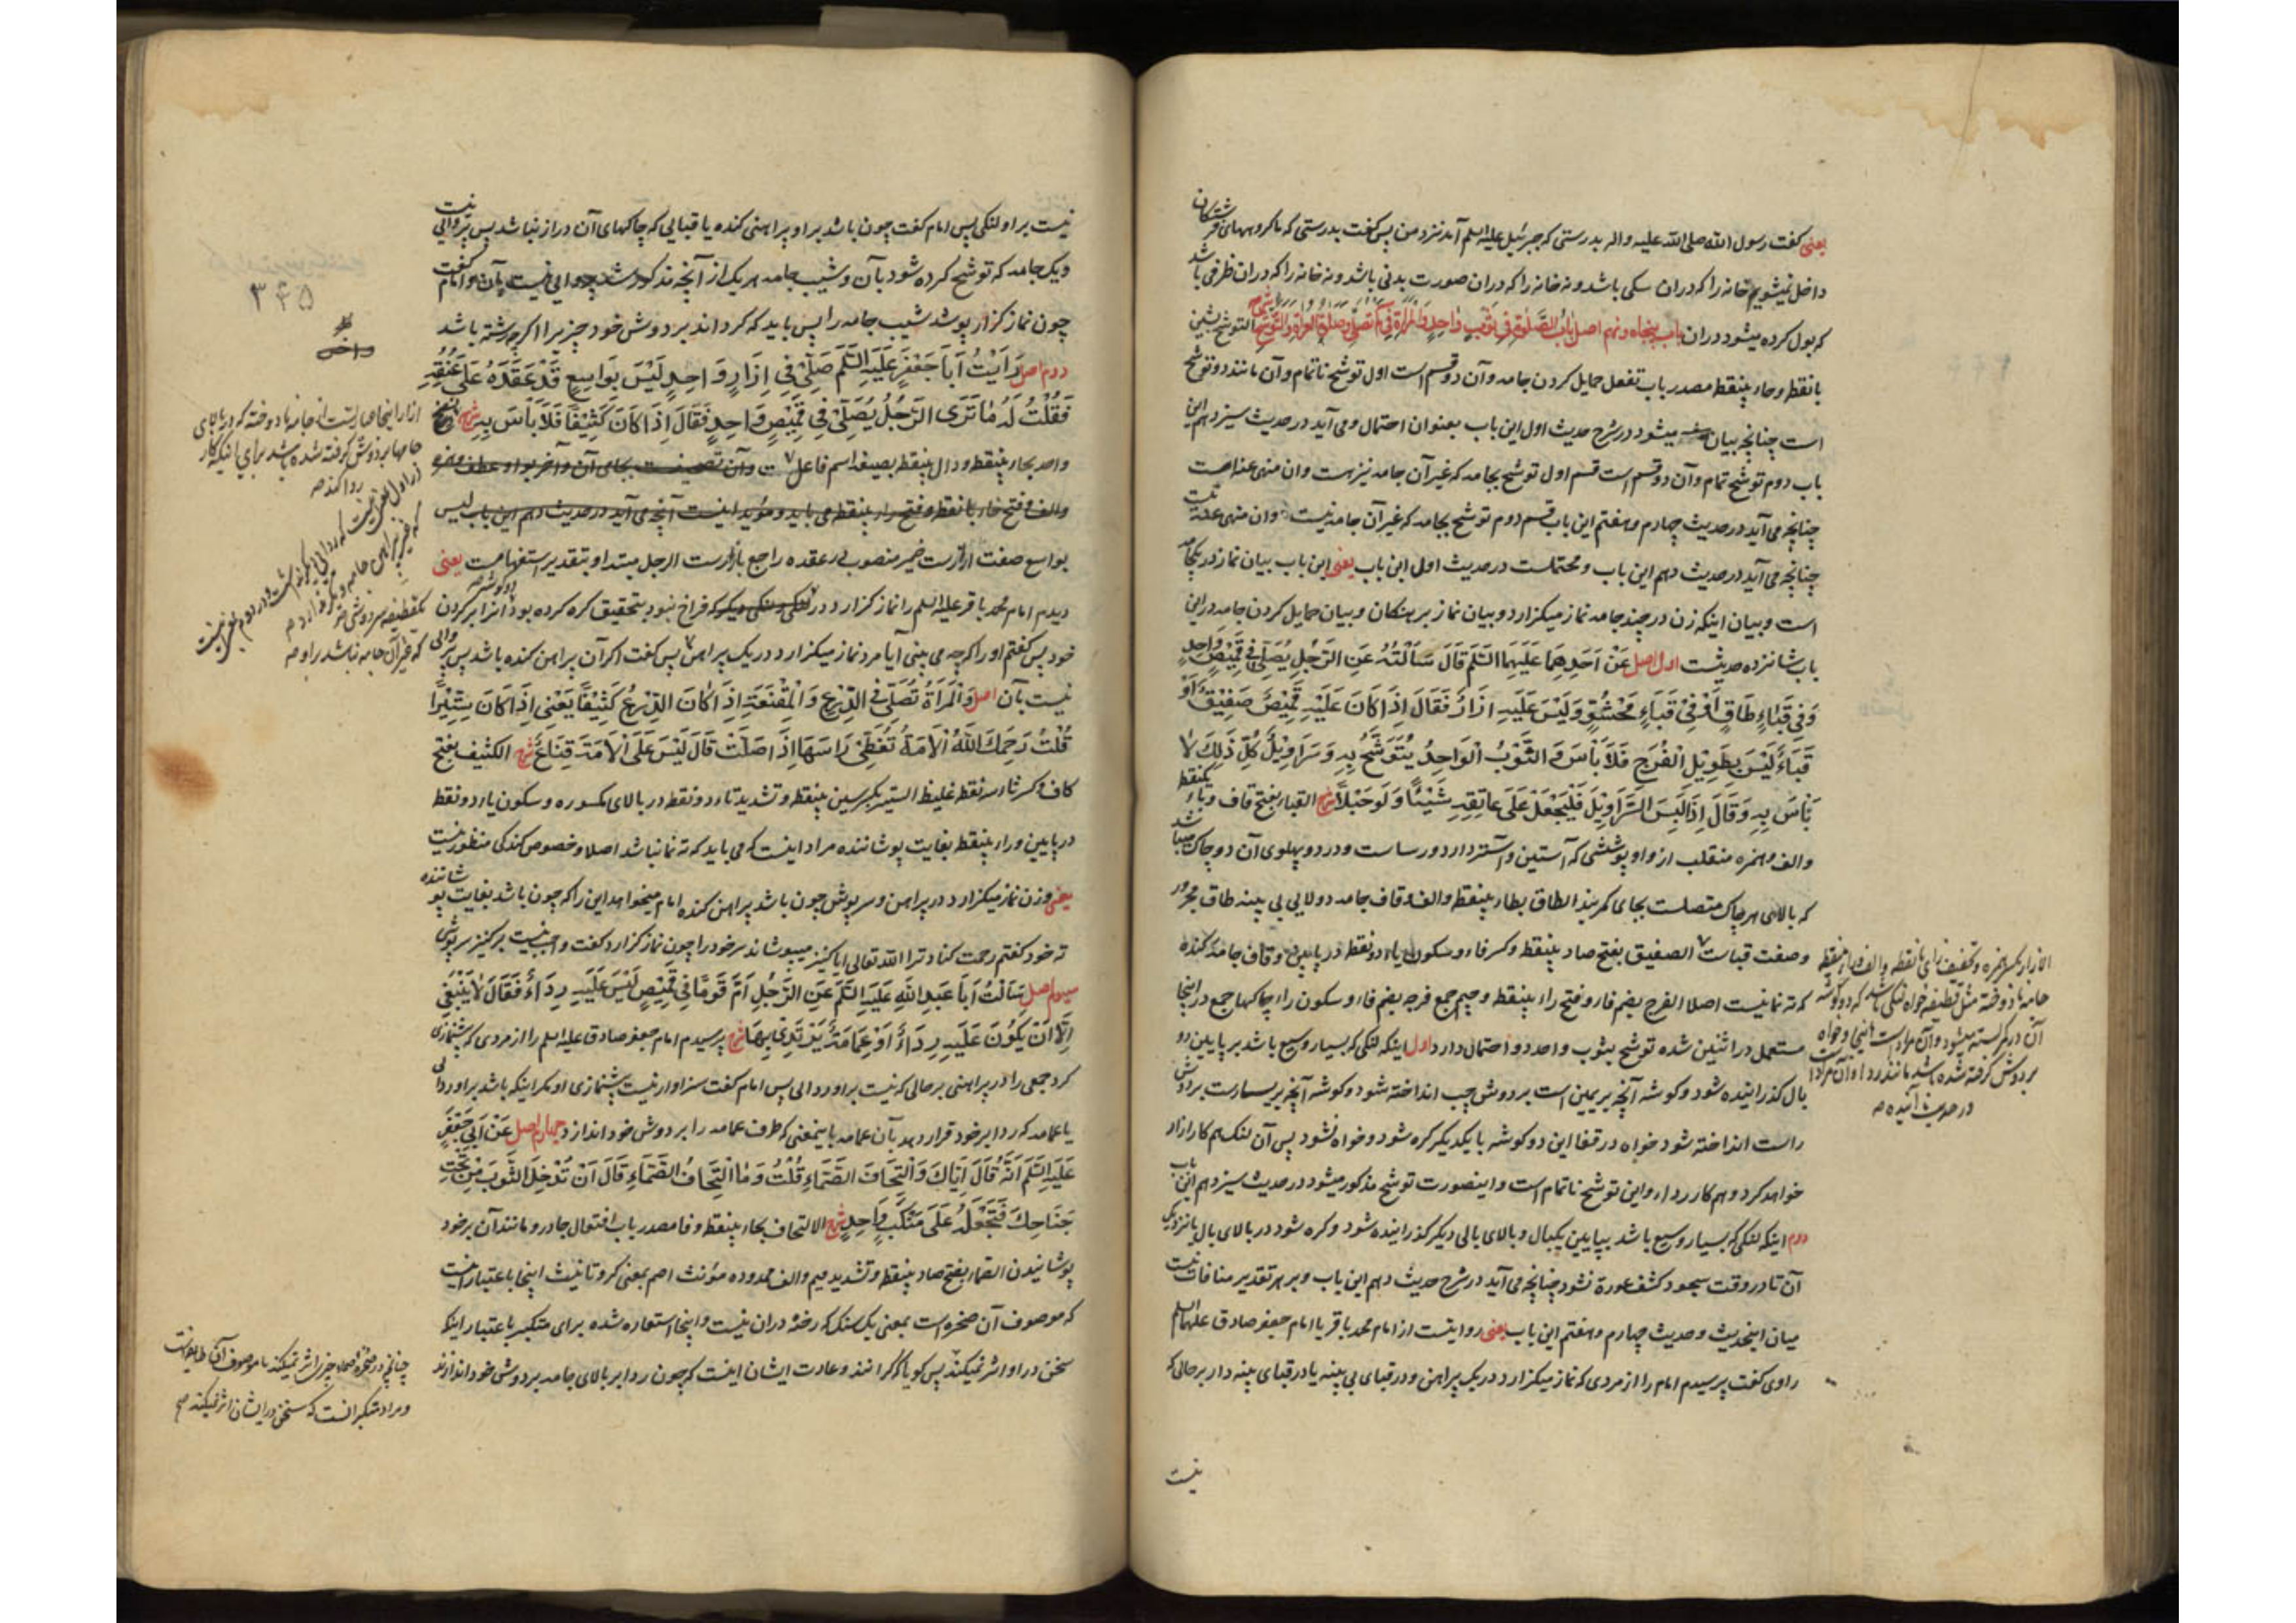 یعنی گفت رسول الله صلی الله علیه واله بدرستی که جبرئیل علیه السلم آمد نزد من پس گفت بدرستی که ما گروههای فرشتگان
داخل نمیشویم خانه را که دران سکی باشد و نه خانه را که دران صورت بدنی باشد و نه خانه را که دران ظرفی باشد
که بول کرده میشود دران باب پنجاه و نهم اصل باب الصلوة فی ثوب واحد والمراة فی کم تصلی وصلوة العراة والتوشح شرح التوشح بشین
بانقطه و حاء بینقطه مصدر باب تفعل حمایل کردن جامه و آن دو قسم است اول توشح ناتمام و آن مانند دو توشح
است چنانچه بیان میشود در شرح حدیث اول این باب بعنوان احتمال و می آید در حدیث سیزدهم این
باب دوم توشح تمام و آن دو قسم است قسم اول توشح بجامه که غیر آن جامه نیز هست و ان منهی عنه است
چنانچه می آید در حدیث چهارم و هفتم این باب قسم دوم توشح بجامه که غیر آن جامه نیست و ان منهی عنه نیست
چنانچه می آید در حدیث دهم این باب و محتملست در حدیث اول این باب یعنی این باب بیان نماز در یکجامه
است و بیان اینکه زن در چند جامه نماز میکزارد و بیان نماز برهنکان و بیان حمایل کردن جامه در این
باب شانزده حدیثست اول اصل عَنْ اَحَدِهِمَا عَلَيْهِمَا السَّلَم قَالَ سَاَلْتُهُ عَنِ الرَّجُلِ يُصَلِّي فِي قَمِيْصٍ وَاحِدٍ
وَفِي قَبَاءٍ طَاقٍ اَوْ فِي قَبَاءٍ مَحْشُوٍّ وَلَيْسَ عَلَيْهِ اِزَارٌ فَقَالَ اِذَا كَانَ عَلَيْهِ قَمِيْصٌ صَفِيْقٌ اَوْ
قَبَاءٌ لَيْسَ بِطَوِيْلِ الْفُرَجِ فَلَا بَأْسَ وَ الثَّوْبُ الْوَاحِدُ يُتَوَشَّحُ بِهِ وَسَرَاوِيْلُ كُلُّ ذَلِكَ لَا
بَأْسَ بِهِ وَقَالَ اِذَا لَبِسَ السَّرَاوِيْلَ فَلْيَجْعَلْ عَلَى عَاتِقِهِ شَيْئًا وَلَوْ حَبْلًا شرح القباء بفتح قاف و باء یکنقطه
والف و همزه منقلب از واو پوششی که آستین و آستر دارد و رساست و در دو پهلوی آن دو چاک میباشد
که بالای هر چاک متصلست بجای کمربند الطاق بطاء بینقطه و الف و قاف جامه دولایی بی پینه طاق مجرور
و صفت قباست الصفیق بفتح صاد بینقطه و کسر فاء و سکون یاء دو نقطه در پایین و قاف جامه کنده
که ته نما نیست اصلا الفرج بضم فاء و فتح راء بینقطه و جیم جمع فرجه بضم فاء و سکون راء چاکها جمع در اینجا
مستعمل در اثنین شده توشح بثوب واحد دو احتمال دارد اول اینکه لنکی که بسیار وسیع باشد بر پایین دو
بال گذرانیده شود و کوشه آنچه بر یمین است بر دوش چپ انداخته شود و کوشه آنچه بر یسارست بر دوش
راست انداخته شود خواه در قفا این دو کوشه با یکدیکر کره شود و خواه نشود پس آن لنک هم کار ازار
خواهد کرد و هم کار رداء و این توشح ناتمام است و اینصورت توشح مذکور میشود در حدیث سیزدهم این باب
دوم اینکه لنکی که بسیار وسیع باشد بپایین یکبال و بالای بالی دیگر گذرانیده شود و کره شود در بالای بال یا نزدیک
آن تا در وقت سجود کشف عورة نشود چنانچه می آید در شرح حدیث دهم این باب و بر هر تقدیر منافات نیست
میان اینحدیث و حدیث چهارم و هفتم این باب یعنی روایتست از امام محمد باقر یا امام جعفر صادق علیهما السلم
راوی گفت پرسیدم امام را از مردی که نماز میکزارد در یک پیراهن و در قبای بی پینه یا در قبای پینه دار بر حالی که
نیست
در حدیث آینده
نیست بر او لنکی پس امام گفت چون باشد بر او پیراهنی کنده یا قبایی که چاکهای آن دراز نباشد پس پروایی نیست
و یک جامه که توشح کرده شود بآن و شیب جامه هر یک از آنچه مذکور شد پروایی نیست بآن و امام گفت
چون نماز گزار پوشد شیب جامه را پس باید که کرداند بر دوش خود چیزیرا اکرچه رشته باشد
دوم اصل رَاَيْتُ اَبَا جَعْفَرٍ عَلَيْهِ السَّلَم صَلَّى فِي اِزَارٍ وَاحِدٍ لَيْسَ بِوَاسِعٍ قَدْ عَقَدَهُ عَلَى عُنُقِهِ
فَقُلْتُ لَهُ مَا تَرَى الرَّجُلُ يُصَلِّي فِي قَمِيْصٍ وَاحِدٍ فَقَالَ اِذَا كَانَ كَثِيْفًا فَلَا بَأْسَ بِهِ شرح
واحد بحاء بینقطه و دال بینقطه بصیغه اسم فاعل
بواسع صفت ازارست ضمیر منصوب در عقده راجع بازارست الرجل مبتدا و بتقدیر استفهامست یعنی
دیدم امام محمد باقر علیه السلم را نماز کزارد در لنکی که فراخ نبود بتحقیق کره کرده بود آنرا بر کردن
خود پس گفتم او را که چه می بینی آیا مرد نماز میکزارد در یک پیراهن پس گفت اکر آن پیراهن کنده باشد پس پروایی
نیست بآن اصل وَالْمَرْأَةُ تُصَلِّي فِي الدِّرْعِ وَ الْمِقْنَعَةِ اِذَا كَانَ الدِّرْعُ كَثِيْفًا يَعْنِي اِذَا كَانَ سِتِّيْرًا
قُلْتُ رَحِمَكَ اللهُ اَلْاَمَةُ تُغَطِّي رَأسَهَا اِذَا صَلَّتْ قَالَ لَيْسَ عَلَى الْاَمَةِ قِنَاعٌ شرح الکثیف بفتح
کاف و کسر ثاء سه نقطه غلیظ الستیر بکسر سین بینقطه و تشدید تاء دو نقطه در بالای مکسوره و سکون یاء دو نقطه
در پایین و راء بینقطه بغایت پوشاننده مراد اینست که می باید که ته نما نباشد اصلا و خصوص کندکی منظور نیست
یعنی و زن نماز میکزارد در پیراهن و سر پوش چون باشد پیراهن کنده امام میخواهد این را که چون باشد بغایت پوشاننده
ته خود گفتم رحمت کناد ترا الله تعالی آیا کنیز میپوشاند سر خود را چون نماز کزارد گفت واجب نیست بر کنیز سر پوشی
سیوم اصل سَاَلْتُ اَبَا عَبْدِ اللهِ عَلَيْهِ السَّلَم عَنِ الرَّجُلِ اَمَّ قَوْمًا فِي قَمِيْصٍ لَيْسَ عَلَيْهِ رِدَاءٌ فَقَالَ لَا يَنْبَغِي
اِلَّا اَنْ يَكُوْنَ عَلَيْهِ رِدَاءٌ اَوْ عِمَامَةٌ يَرْتَدِي بِهَا شرح پرسیدم امام جعفر صادق علیه السلم را از مردی که پیشنمازی
کرد جمعی را در پیراهنی بر حالی که نیست بر او ردایی پس امام گفت سزاوار نیست پیشنمازی او مکر اینکه باشد بر او ردایی
یا عمامه که ردا بر خود قرار دهد بآن عمامه باینمعنی که طرف عمامه را بر دوش خود اندازد چهارم اصل عَنْ اَبِي جَعْفَرٍ
عَلَيْهِ السَّلَم اَنَّهُ قَالَ اِيَّاكَ وَ الْتِحَافَ الصَّمَّاءِ قُلْتُ وَمَا الْتِحَافُ الصَّمَّاءِ قَالَ اَنْ تُدْخِلَ الثَّوْبَ مِنْ تَحْتِ
جَنَاحِكَ فَتَجْعَلَهُ عَلَى مَنْكِبٍ وَاحِدٍ شرح الالتحاف بحاء بینقطه و فا مصدر باب افتعال چادر و مانند آن بر خود
پوشانیدن الصماء بفتح صاد بینقطه و تشدید میم و الف ممدوده مؤنث اصم بمعنی کر و تانیث اینجا باعتبار اینست
که موصوف آن صخره است بمعنی یک سنک که رخنه دران نیست و اینجا استعاره شده برای متکبر باعتبار اینکه
سخن در او اثر نمیکند پس کویا که کرانند و عادت ایشان اینست که چون ردا بر بالای جامه بر دوش خود اندازند
۳۴۵
و مراد متکبرانست که سخن در ایشان اثر نمیکند